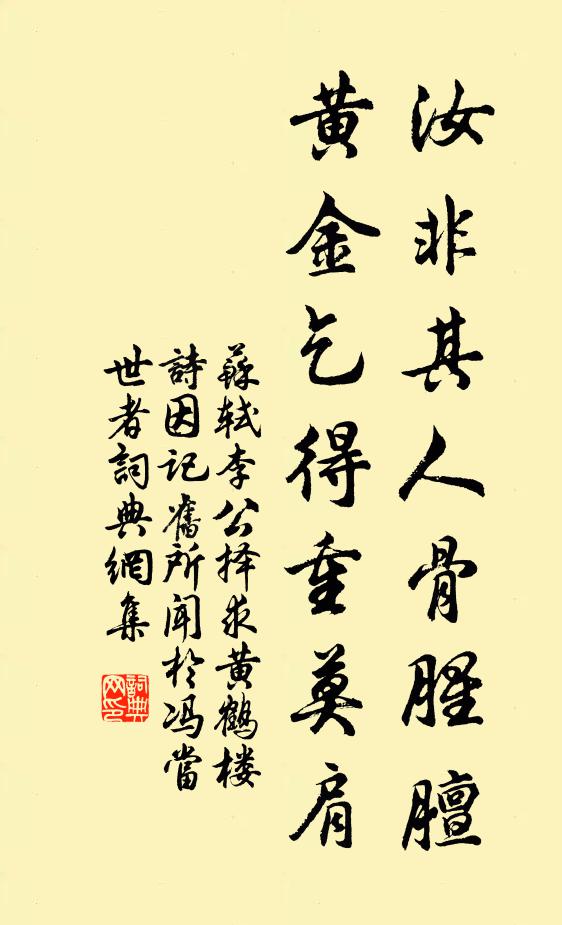 汝非其人骨腥膻
黄金乞得重莫肩
蘇轼李公择求黄鶴楼
詩因记舊所闻於冯當
世者詞典網集
詞典网印